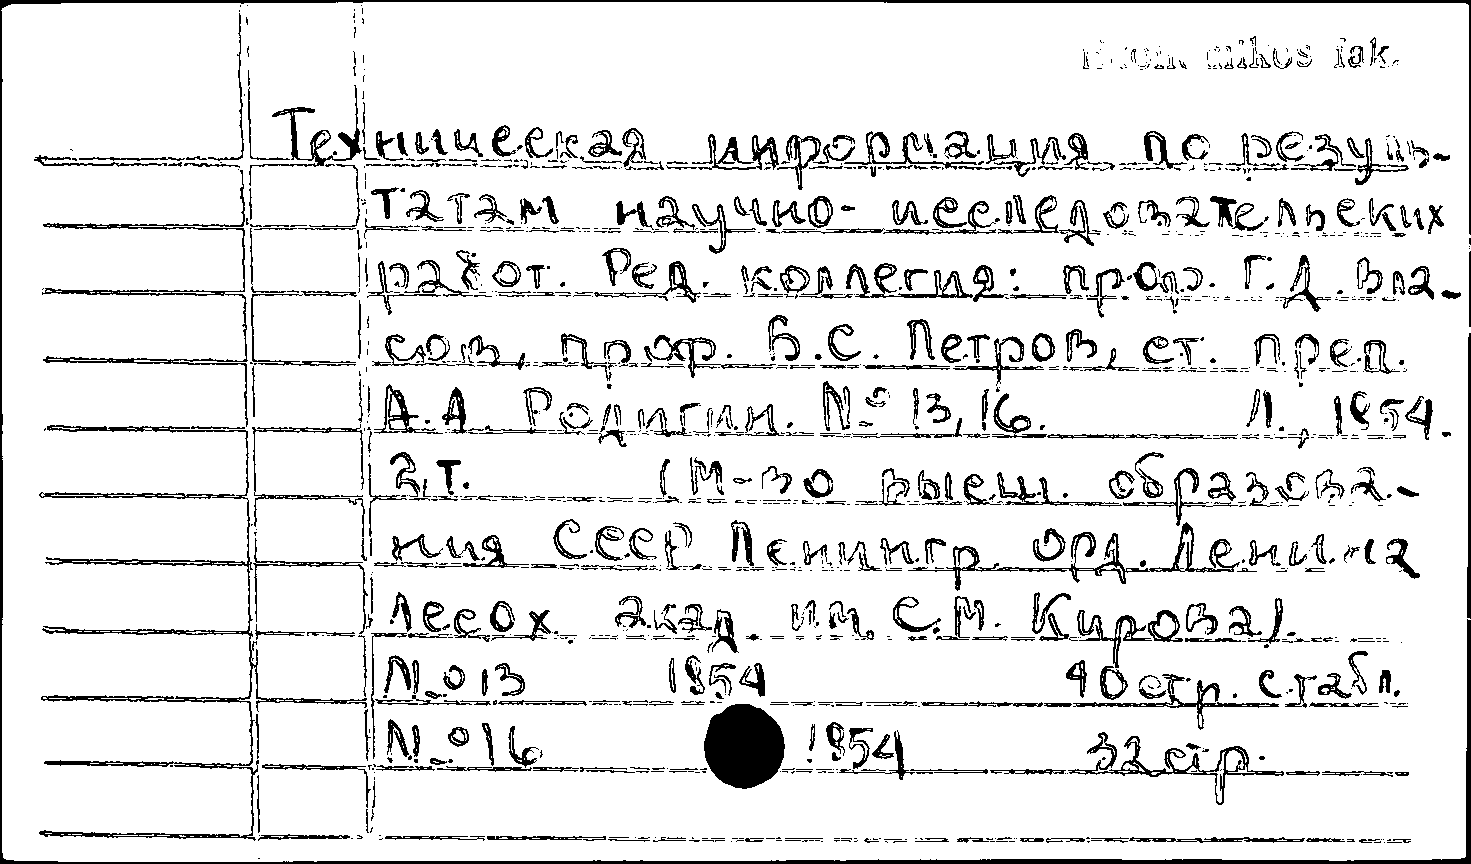 fak.
Техническая информация по резуль-
татам научно-исследовательских
работ. Ред. коллегия: проф. Г.Д. Вла-
сов, проф. Б.С. Петров, ст. преп.
А.А. Родигин. № 13, 16. Л., 1954.
2 т. (М-во высш. образова-
ния СССР Ленингр. орд. Ленина
лесох. акад. им. С.М. Кирова).
№ 13 1954 40 стр. с табл.
№ 16 1954 32 стр.